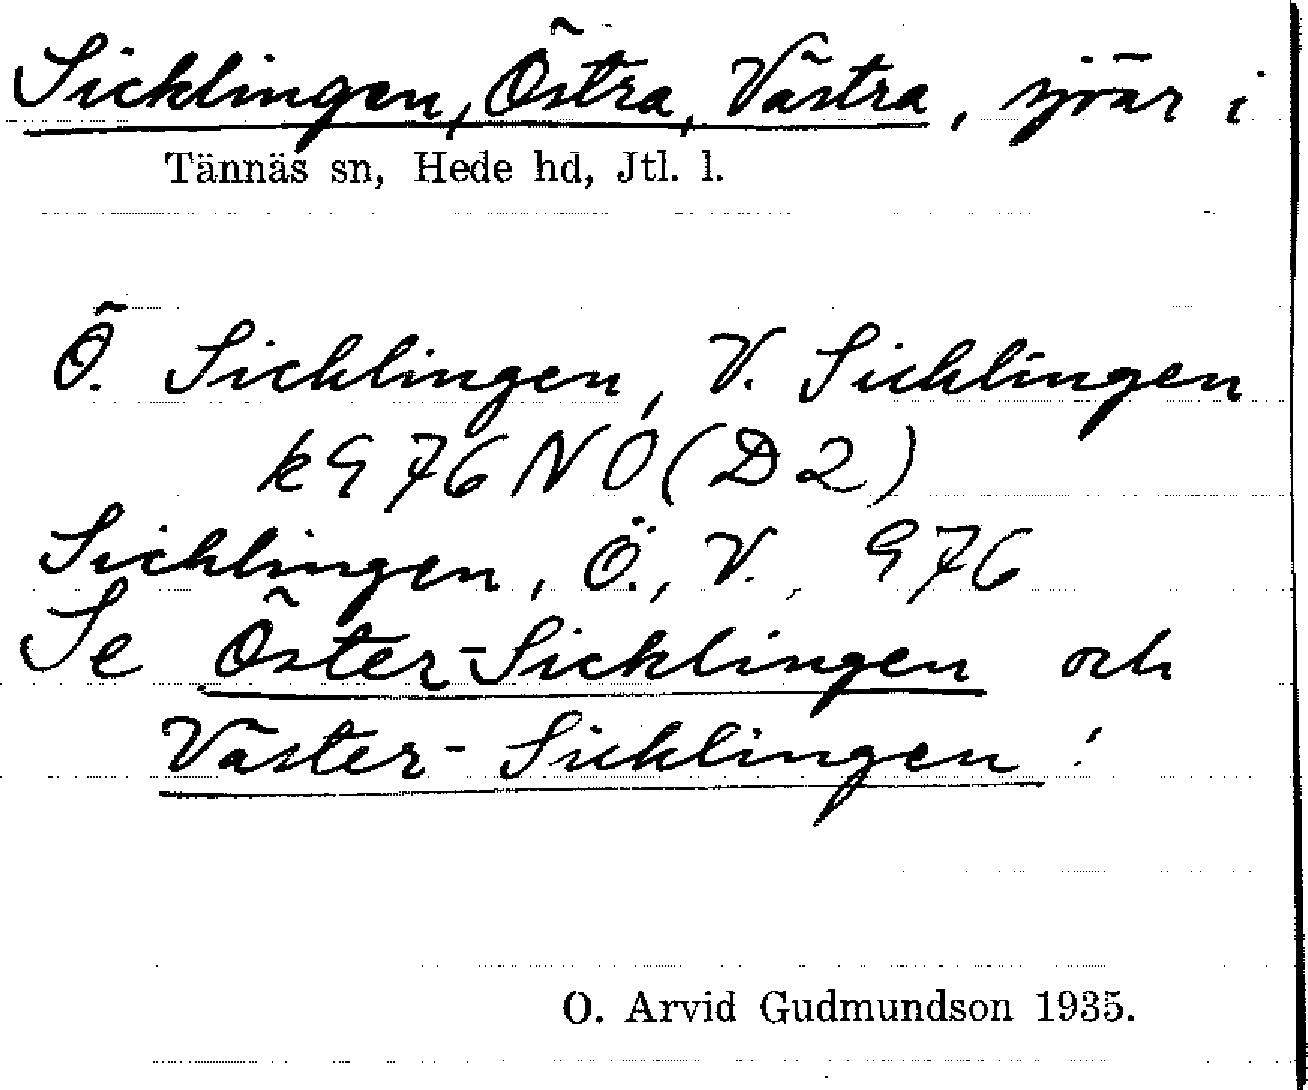 Sicklingen, Östra, Västra, sjöar i
Tännäs sn, Hede hd, Jtl. l.
Ö. Sicklingen, V. Sicklingen
k G 76 NO (D 2)
Sicklingen, Ö., V., G 76
Se Öster-Sicklingen och
Väster-Sicklingen!
O. Arvid Gudmundson 1935.